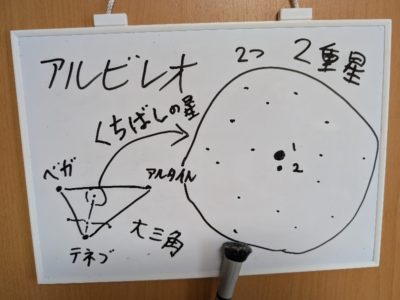 アルビレオ
2つ 2重星
くちばしの星
ベガ
アルタイル
1
2
テネブ
大三角